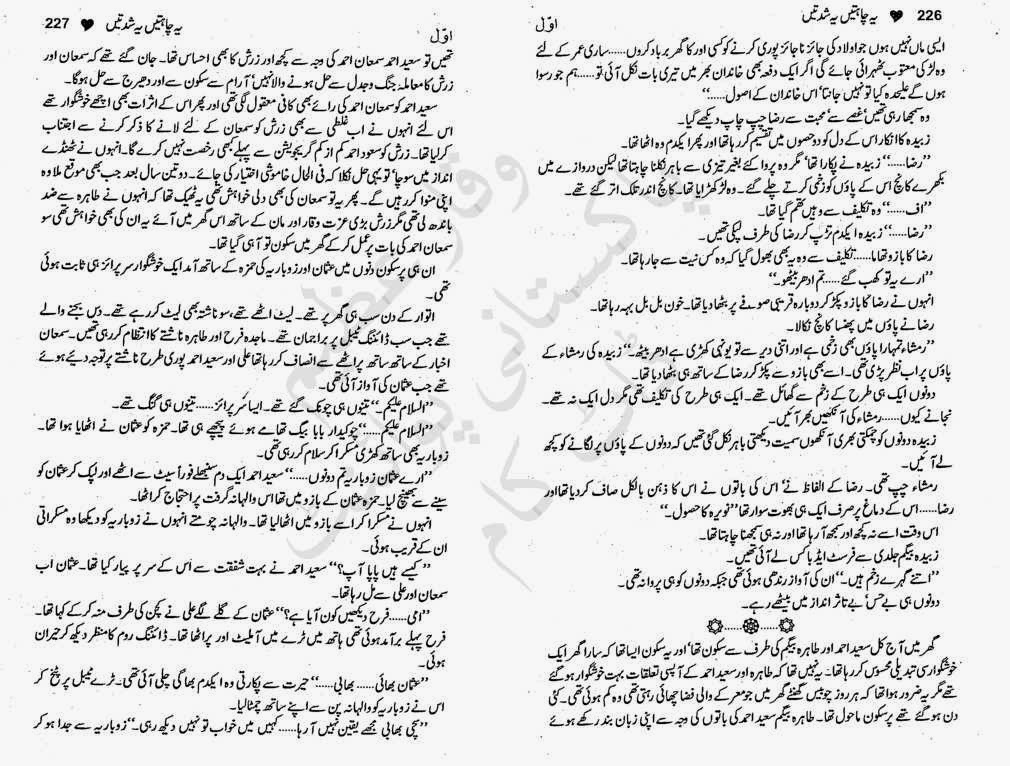 226 ♥ یہ چاہتیں یہ شدتیں اول
ایسی ماں نہیں ہوں جو اولاد کی جائز ناجائز پوری کرنے کو کسی اور کا گھر برباد کروں......ساری عمر کے لئے
وہ لڑکی معتوب ٹھہرائی جائے گی اگر ایک دفعہ بھی خاندان بھر میں تیری بات نکل آئی تو......ہم جو رسوا
ہوں گے علیحدہ کیا تو نہیں جانتا‘ اس خاندان کے اصول......‘‘
وہ سمجھا رہی تھیں‘ غصے سے‘ محبت سے رضا چپ چاپ دیکھے گیا۔
زبیدہ کا انکار اس کے دل کو دو حصوں میں تقسیم کر رہا تھا اور پھر ایکدم وہ اٹھا تھا۔
’’رضا......‘‘ زبیدہ نے پکارا تھا‘ مگر وہ پروا کئے بغیر تیزی سے باہر نکلنا چاہتا تھا لیکن دروازے میں
بکھرے کانچ اس کے پاؤں کو زخمی کرتے چلے گئے۔ وہ لڑکھڑایا تھا۔ کانچ اندر تلک اتر گئے تھے۔
’’اف......‘‘ وہ تکلیف سے وہیں تھم گیا تھا۔
’’رضا......‘‘ زبیدہ ایکدم تڑپ کر رضا کی طرف لپکی تھیں۔
رضا کا بازو تھاما......تکلیف سے وہ یہ بھی بھول گیا کہ وہ کس نیت سے جا رہا تھا۔
’’ارے یہ تو کھب گئے......تم ادھر بیٹھو۔‘‘
انہوں نے رضا کا بازو پکڑ کر دوبارہ قریبی صوفے پر بٹھا دیا تھا۔ خون بل بل بہہ رہا تھا۔
رضا نے پاؤں میں پھنسا کانچ نکالا۔
’’رمشاء تمہارا پاؤں بھی زخمی ہے اور اتنی دیر سے تو یونہی کھڑی ہے ادھر بیٹھ۔‘‘ زبیدہ کی رمشاء کے
پاؤں پر اب نظر پڑی تھی۔ اسے بھی بازو سے پکڑ کر رضا کے ساتھ ہی بٹھا دیا تھا۔
دونوں ایک ہی طرح کے زخم سے گھائل تھے۔ ایک ہی طرح کی تکلیف تھی مگر دل ایک نہ تھے۔
نجانے کیوں......رمشاء کی آنکھیں بھر آئیں۔
زبیدہ دونوں کو چمکتی بھری آنکھوں سمیت دیکھتی باہر نکل گئی تھیں کہ دونوں کے پاؤں پر لگانے کو کچھ
لے آئیں۔
رمشاء چپ تھی۔ رضا کے الفاظ نے‘ اس کی باتوں نے اس کا ذہن بالکل صاف کر دیا تھا اور
رضا......اس کے دماغ پر صرف ایک ہی بھوت سوار تھا ’’نویرہ کا حصول۔‘‘
اس وقت اسے نہ کچھ اور سمجھ آ رہا تھا اور نہ ہی سمجھنا چاہتا تھا۔
زبیدہ بیگم جلدی سے فرسٹ ایڈ باکس لے آئی تھیں۔
’’اتنے گہرے زخم ہیں۔‘‘ ان کی آواز رندھی ہوئی تھی جبکہ دونوں کو ہی پروا نہ تھی۔
دونوں ہی بے حس‘ بے تاثر انداز میں بیٹھے رہے۔
گھر میں آج کل سعید احمد اور طاہرہ بیگم کی طرف سے سکون تھا‘ اور یہ سکون ایسا تھا کہ سارا گھر ایک
خوشگوار سی تبدیلی محسوس کر رہا تھا۔ یہ نہیں تھا کہ طاہرہ اور سعید احمد کے آپسی تعلقات بہت خوشگوار ہو گئے
تھے مگر یہ ضرور ہوا تھا کہ ہر روز چوبیس گھنٹے گھر میں جو معرکے والی فضا چھائی رہتی تھی وہ کم ہوئی تھی۔ کئی
دن ہو گئے تھے پرسکون ماحول تھا۔ طاہرہ بیگم سعید احمد کی باتوں کی وجہ سے اپنی زبان بند رکھے ہوئے
یہ چاہتیں یہ شدتیں ♥ 227 اول
تھیں تو سعید احمد سمعان احمد کی وجہ سے کچھ اور زرش کا بھی احساس تھا۔ جان گئے تھے کہ سمعان اور
زرش کا معاملہ جنگ و جدل سے حل ہونے والا نہیں‘ آرام سے سکون سے اور دھیرج سے حل ہو گا۔
سعید احمد کو سمعان احمد کی رائے بھی کافی معقول لگی تھی اور پھر اس کے اثرات بھی اچھے خوشگوار تھے
اس لئے انہوں نے اب غلطی سے بھی زرش کو سمعان کے لئے لانے کا ذکر کرنے سے اجتناب
کر لیا تھا۔ زرش کو سعود احمد کم از کم گریجویشن سے پہلے بھی رخصت نہیں کرے گا۔ انہوں نے ٹھنڈے
انداز میں سوچا‘ تو یہی حل نکلا کہ فی الحال خاموشی اختیار کی جائے۔ دو تین سال بعد جب بھی موقع ملا وہ
اپنی منوا کر رہیں گے۔ پھر یہ تو سمعان کی بھی دلی خواہش تھی یہ ٹھیک تھا کہ انہوں نے طاہرہ سے ضد
باندھ لی تھی مگر زرش بڑی عزت و وقار اور مان کے ساتھ اس گھر میں آئے یہ ان کی بھی خواہش تھی سو
سمعان احمد کی بات پر عمل کر کے گھر میں سکون تو آ ہی گیا تھا۔
ان ہی پرسکون دنوں میں عثمان اور زوباریہ کی حمزہ کے ساتھ آمد ایک خوشگوار سرپرائز ہی ثابت ہوئی
تھی۔
اتوار کے دن سب ہی گھر پر تھے۔ لیٹ اٹھے تھے‘ سو ناشتہ بھی لیٹ کر رہے تھے۔ دس بجنے والے
تھے جب سب ڈائننگ ٹیبل پر براجمان تھے۔ ماجدہ فرح اور طاہرہ ناشتے کا انتظام کر رہی تھیں۔ سمعان
اخبار کے ساتھ ساتھ پراٹھے سے انصاف کر رہا تھا علی اور سعید احمد پوری طرح ناشتے پر توجہ دیئے ہوئے
تھے جب عثمان کی آواز آئی تھی۔
’’السلام علیکم۔‘‘ تینوں ہی چونک گئے تھے۔ ایسا سرپرائز......تینوں ہی گنگ تھے۔
’’السلام علیکم......‘‘ چوکیدار بابا بیگ تھامے ہوئے پیچھے ہی تھا۔ حمزہ کو عثمان نے اٹھایا ہوا تھا۔
زوباریہ بھی ساتھ کھڑی مسکرا کر سلام کر رہی تھی۔
’’ارے عثمان زوباریہ تم دونوں......‘‘ سعید احمد ایک دم سنبھلے فوراً سیٹ سے اٹھے اور لپک کر عثمان کو
سینے سے بھینچ لیا۔ حمزہ عثمان کے بازو میں تھا اس والہانہ گرفت پر احتجاج کر اٹھا تھا۔
انہوں نے مسکرا کر اسے بازو میں اٹھا لیا تھا۔ والہانہ چومتے انہوں نے زوباریہ کو دیکھا وہ مسکراتی
ان کے قریب ہوئی۔
’’کیسے ہیں پاپا آپ؟‘‘ سعید احمد نے بہت شفقت سے اس کے سر پر پیار کیا تھا۔ عثمان اب
سمعان اور علی سے مل رہا تھا۔
’’امی......فرح دیکھیں کون آیا ہے؟‘‘ عثمان کے گلے لگے علی نے کچن کی طرف منہ کر کے کہا تھا۔
فرح پہلے برآمد ہوئی تھی ہاتھ میں ٹرے میں آملیٹ اور پراٹھا تھا۔ ڈائننگ روم کا منظر دیکھ کر حیران
ہوئی۔
’’عثمان بھائی......بھابی......‘‘ حیرت سے پکارتی وہ ایکدم بھاگی چلی آئی تھی۔ ٹرے ٹیبل پر پٹخ کر
اس نے زوباریہ کو والہانہ پن سے اپنے ساتھ چمٹا لیا۔
’’سچی بھابی مجھے یقین نہیں آ رہا......کہیں میں خواب تو نہیں دیکھ رہی۔‘‘ زوباریہ سے جدا ہو کر